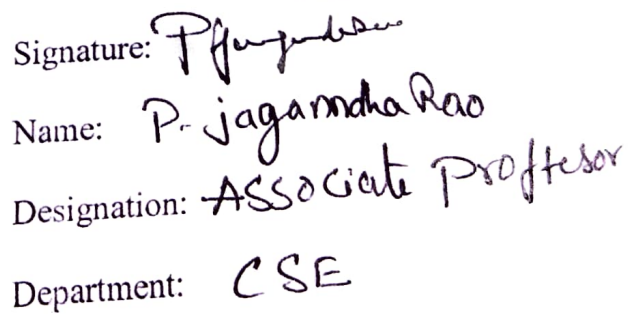 Signature:
Name: P. jaganndha Rao
Designation: ASSociate Proffesor
Department: CSE